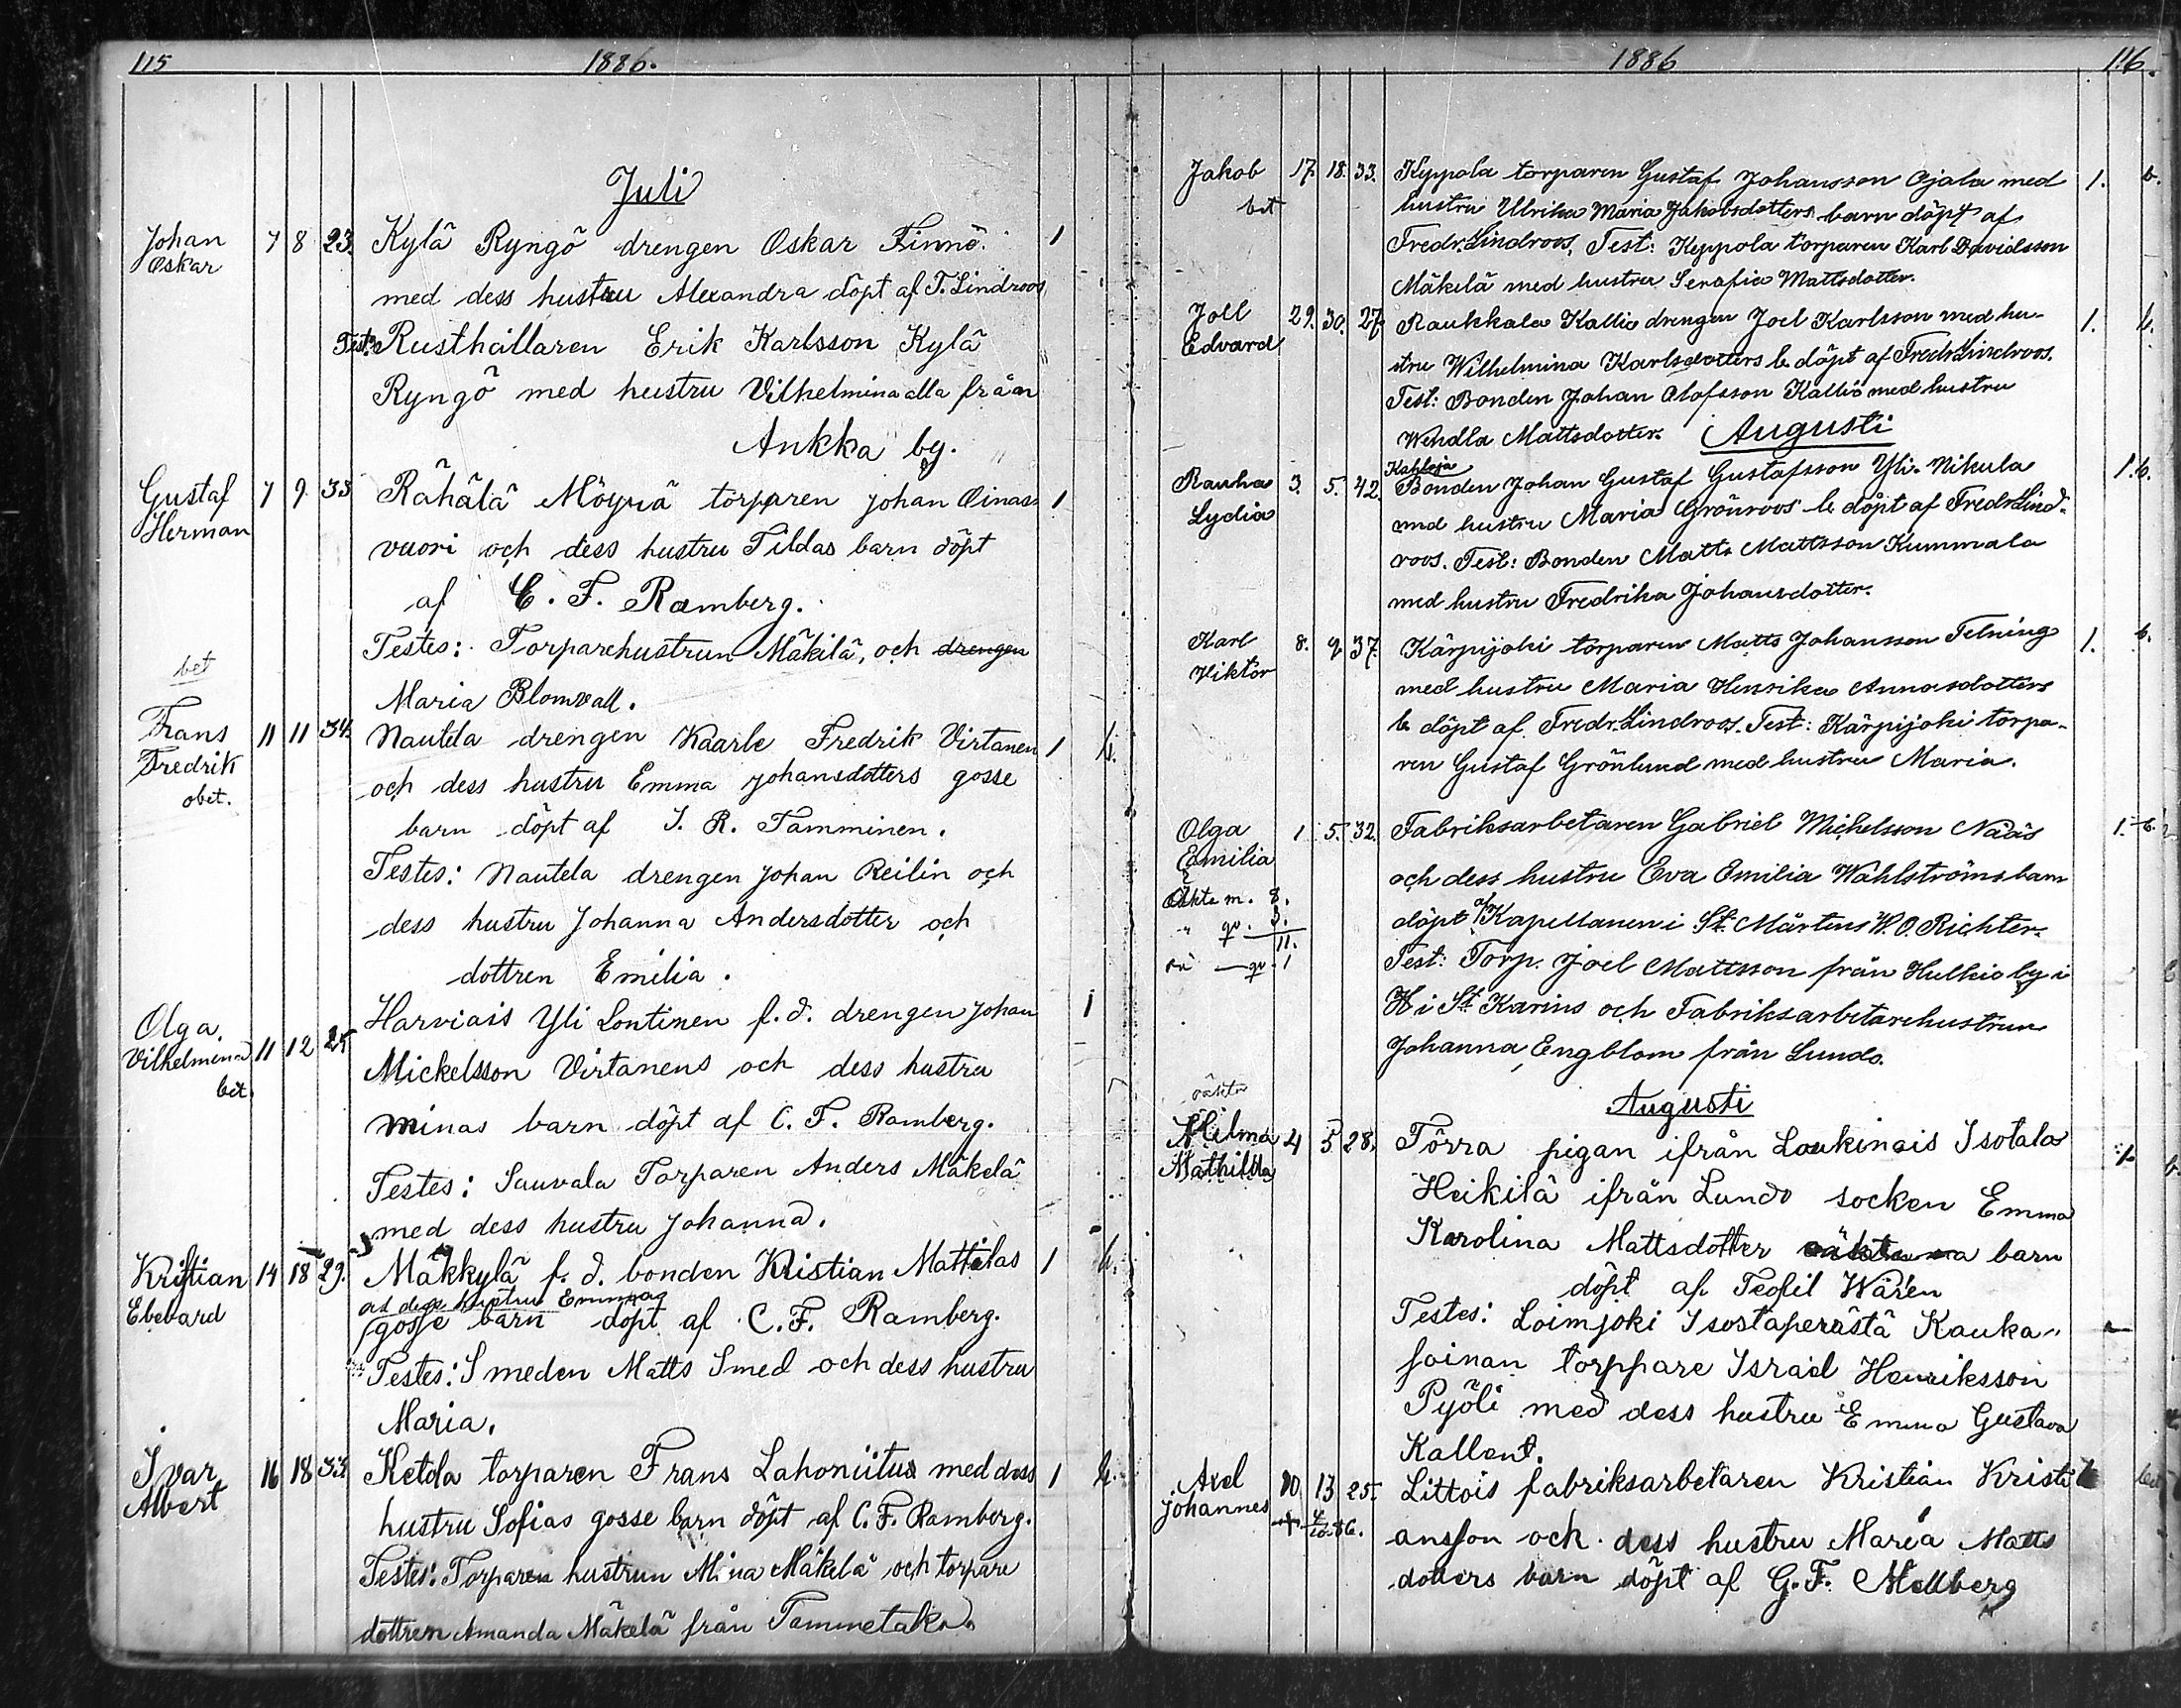 115
1886.
Juli
Johan Oskar 7 8 23. Kylä Ryngö drengen Oskar Finnö. 1
med dess hustru Alexandra döpt af F. Lindroos
Test: Rusthållaren Erik Karlsson Kylä
Ryngö med hustru Vilhelmina alla från
Ankka by.
Gustaf Herman 7 9 33 Rähälä Möyriä torparen Johan Oinas- 1
vuori och dess hustru Tildas barn döpt
af C. F. Ramberg.
Testes: Torparehustrun Mäkilä, och drengen
Maria Blomvall.
bet
Frans Fredrik obet. 11 11 34. Nautela drengen Kaarle Fredrik Virtanen 1 b.
och dess hustru Emma Johansdotters gosse
barn döpt af J. R. Tamminen.
Testes: Nautela drengen Johan Reilin och
dess hustru Johanna Andersdotter och
dottren Emilia.
Olga Vilhelmina bet. 11 12 25 Harviais Yli Lontinen f. d. drengen Johan 1
Mickelsson Virtanens och dess hustru
Minas barn döpt af C. F. Ramberg.
Testes: Sauvala Torparen Anders Mäkelä
med dess hustru Johanna.
Kristian Edvard 14 18 29. Mäkkylä f. d. bonden Kristian Mattilas 1 b.
och dess hustru Emmas
gosse barn döpt af C. F. Ramberg.
Testes: Smeden Matts Smed och dess hustru
Maria.
Ivar Albert 16 18 33. Ketola torparen Frans Lahoniitus med dess 1 b.
hustru Sofias gosse barn döpt af C. F. Ramberg.
Testes: Torparen hustrun Mina Mäkelä och torpare
dottren Amanda Mäkelä från Tammetaka.
1886
116.
Jakob bet 17. 18. 33. Keppola torparen Gustaf Johansson Ojala med 1. b.
hustru Ulrika Maria Jakobsdotters barn döpt af
Fredr. Lindroos. Test: Keppola torparen Karl Davidsson
Mäkelä med hustru Serafia Mattsdotter.
Joel Edvard 29. 30. 27. Raukkala Kallio drengen Joel Karlsson med hu- 1. b.
stru Wilhelmina Karlsdotters b. döpt af Fredr. Lindroos.
Test: Bonden Johan Olofsson Kallio med hustru
Wendla Mattsdotter. Augusti
Rauha Lydia 3. 5. 42. Bonden Johan Gustaf Gustafsson Yli-Nikula 1. b.
med hustru Maria Grönroos b. döpt af Fredr. Lind-
roos. Test: Bonden Matts Mattsson Kummala
med hustru Fredrika Johansdotter.
Karl Viktor 8. 9. 37. Kärpijoki torparen Matts Johansson Telning 1. b.
med hustru Maria Henrika Annasdotters
b. döpt af Fredr. Lindroos. Test: Kärpijoki torpa-
ren Gustaf Grönlund med hustru Maria.
Olga Emilia 1 5. 32. Fabriksarbetaren Gabriel Michelsson Nääs 1. b.
och dess hustru Eva Emilia Wahlströms barn
Äkta m. 8.
" qv. 3.
11.
oä qv. 1
döpt af Kapellanen i St. Mårtens W. O. Richter.
Test: Torp. Joel Mattsson från Hulkio by i
H i St. Karins och Fabriksarbetarehustrun
Johanna Engblom från Lundo.
Augusti
oäkta
Hilma Mathilda 4 5 28. Törra pigan ifrån Loukinais Isotalo 1 b.
Heikilä ifrån Lundo socken Emma
Karolina Mattsdotter oäkta barn
döpt af Teofil Warén
Testes: Loimjoki Isostaperästä Kauka-
soinan torppare Israel Henriksson
Pyöli med dess hustru Emma Gustava
Kallent.
Axel Johannes 10. 13 25. Littois fabriksarbetaren Kristian Kristi
ansson och dess hustru Maria Matts
dotters barn döpt af G. F. Mellberg